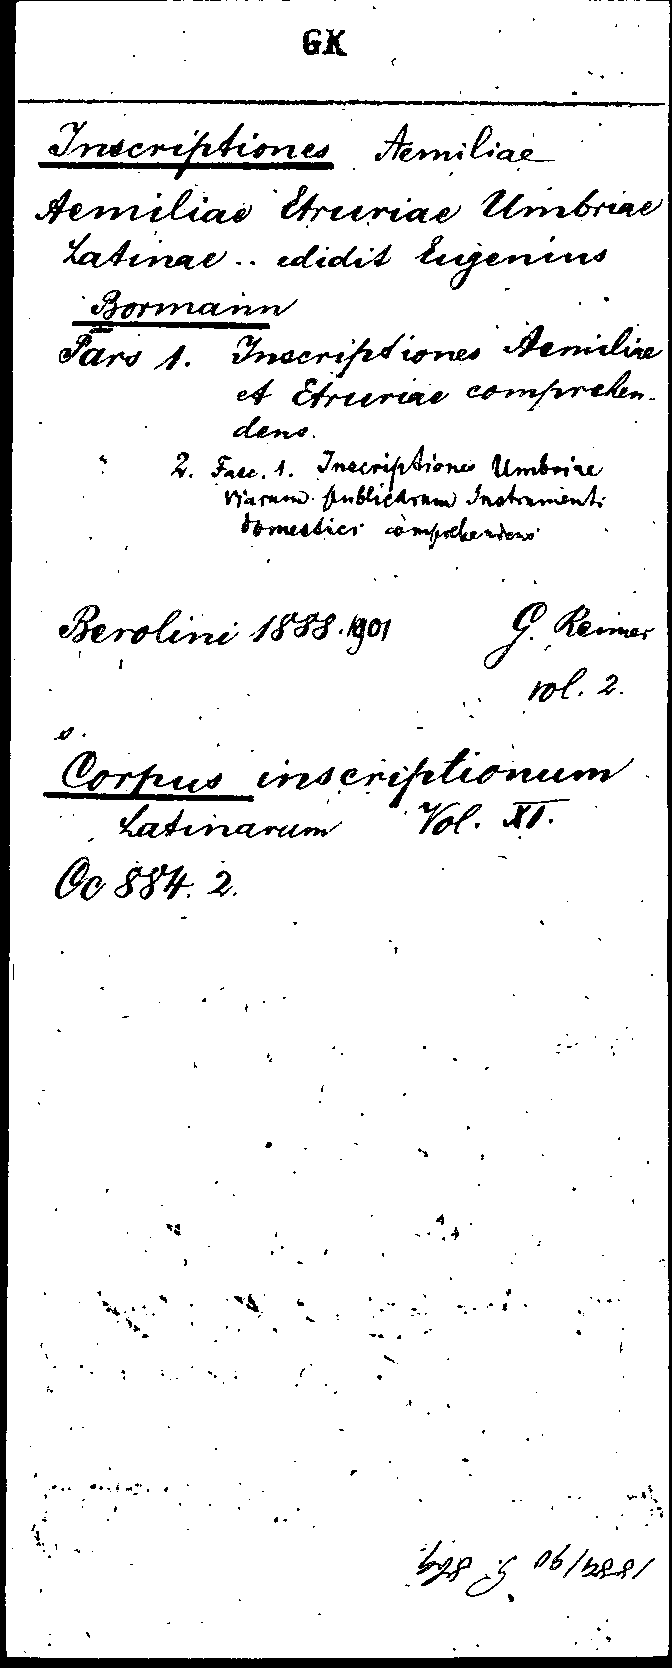 GK
Inscriptiones Aemiliae
Aemiliae Etruriae Umbriae
Latinae .. edidit Eugenius
Bormann
Pars 1. Inscriptiones Aemiliae
et Etruriae comprehen-
dens.
" 2. Fasc. 1. Inscriptiones Umbriae
viarum publicarum Instrumenti
domestici comprehendens
Berolini 1888.1901 G. Reimer
vol. 2.
s.
Corpus inscriptionum
Latinarum Vol. XI.
Oc 884. 2.